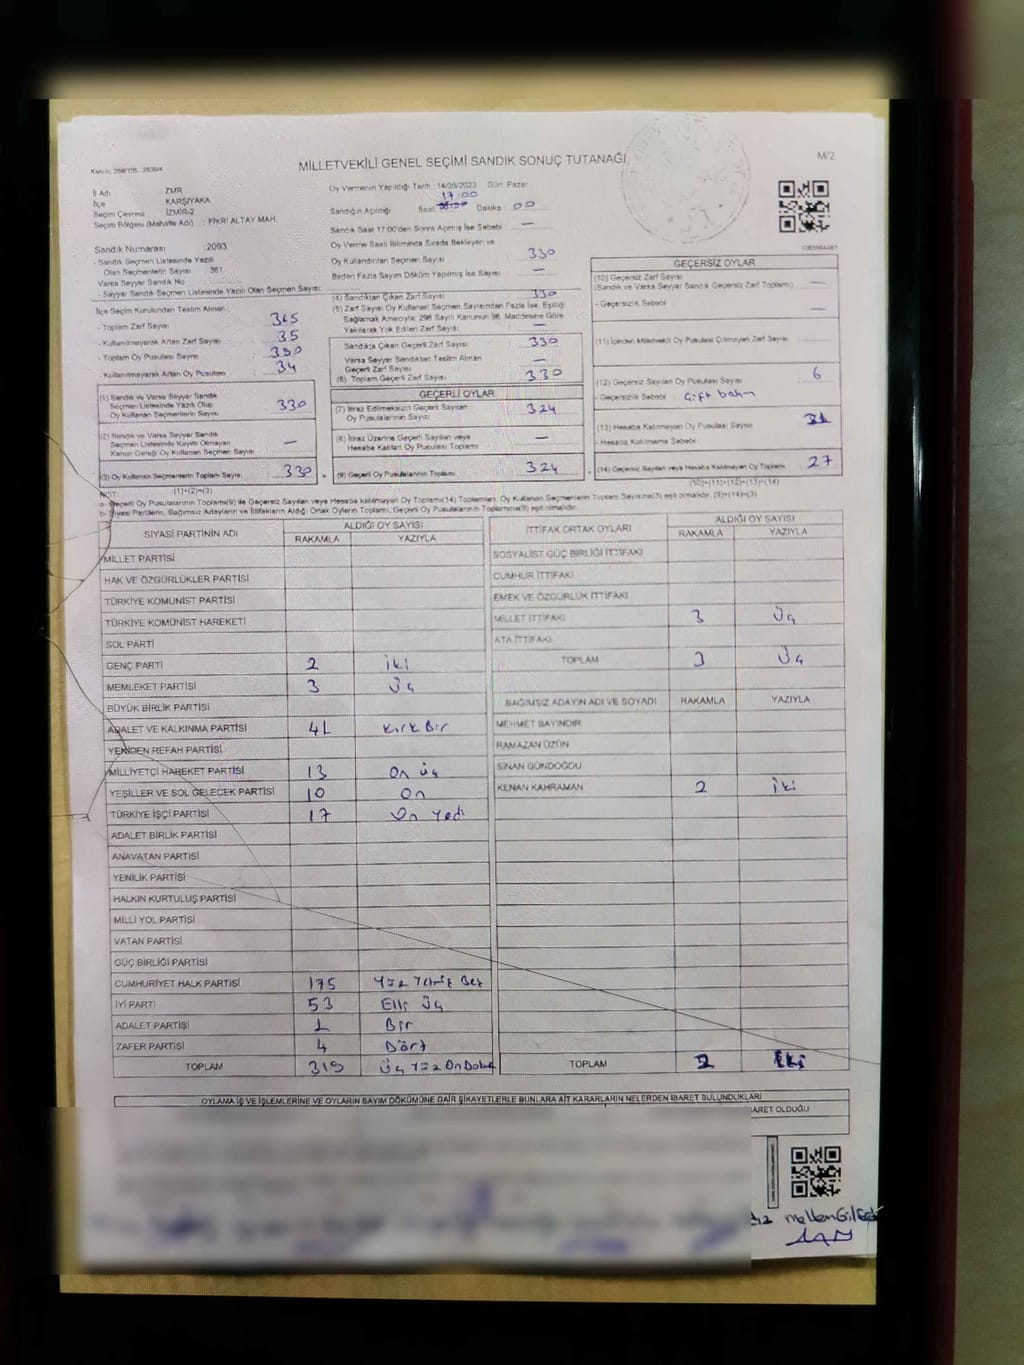 MİLLETVEKİLİ GENEL SEÇİMİ SANDIK SONUÇ TUTANAĞI
M/2
İl Adı ZMR
İlçe KARŞIYAKA
Seçim Çevresi İZMİR-2
Seçim Bölgesi (Mahalle Adı) : FİKRİ ALTAY MAH.
Sandık Numarası :2093
- Sandık Seçmen Listesinde Yazılı
Olan Seçmenlerin Sayısı : 361
Varsa Seyyar Sandık No
- Seyyar Sandık Seçmen Listesinde Yazılı Olan Seçmen Sayısı:
İlçe Seçim Kurulundan Teslim Alınan
- Toplam Zarf Sayısı : 365
- Kullanılmayarak Artan Zarf Sayısı : 35
- Toplam Oy Pusulası Sayısı : 330
- Kullanılmayarak Artan Oy Pusulası : 34
(1) Sandık ve Varsa Seyyar Sandık
Seçmen Listesinde Yazılı Olup
Oy Kullanan Seçmenlerin Sayısı 330
(2) Sandık ve Varsa Seyyar Sandık
Seçmen Listesinde Kayıtlı Olmayan
Kanun Gereği Oy Kullanan Seçmen Sayısı —
(3) Oy Kullanan Seçmenlerin Toplam Sayısı 330
(1)+(2)=(3)
Oy Vermenin Yapıldığı Tarih : 14/05/2023 Gün: Pazar
17:00
Sandığın Açıldığı Saat Dakika : 00
Sandık Saat 17:00'den Sonra Açılmış İse Sebebi : —
Oy Verme Saati Bitiminde Sırada Bekleyen ve
Oy Kullandırılan Seçmen Sayısı : 330
Birden Fazla Sayım Döküm Yapılmış İse Sayısı : —
(4) Sandıktan Çıkan Zarf Sayısı : 330
(5) Zarf Sayısı Oy Kullanan Seçmen Sayısından Fazla İse, Eşitliği
Sağlamak Amacıyla; 298 Sayılı Kanunun 98. Maddesine Göre
Yakılarak Yok Edilen Zarf Sayısı : —
Sandıkta Çıkan Geçerli Zarf Sayısı : 330
Varsa Seyyar Sandıktan Teslim Alınan
Geçerli Zarf Sayısı : —
(6) Toplam Geçerli Zarf Sayısı : 330
GEÇERLİ OYLAR
(7) İtiraz Edilmeksizin Geçerli Sayılan
Oy Pusulalarının Sayısı : 324
(8) İtiraz Üzerine Geçerli Sayılan veya
Hesaba Katılan Oy Pusulaları Toplamı : —
(9) Geçerli Oy Pusulalarının Toplamı : 324
GEÇERSİZ OYLAR
(10) Geçersiz Zarf Sayısı
(Sandık ve Varsa Seyyar Sandık Geçersiz Zarf Toplamı) : —
- Geçersizlik Sebebi : —
(11) İçinden Milletvekili Oy Pusulası Çıkmayan Zarf Sayısı :
(12) Geçersiz Sayılan Oy Pusulası Sayısı : 6
- Geçersizlik Sebebi :
(13) Hesaba Katılmayan Oy Pusulası Sayısı
- Hesaba Katılmama Sebebi :
(14) Geçersiz Sayılan veya Hesaba Katılmayan Oy Toplamı : 27
(10)+(11)+(12)+(13)=(14)
NOT:
a- Geçerli Oy Pusulalarının Toplamı(9) ile Geçersiz Sayılan veya Hesaba katılmayan Oy Toplamı(14) Toplamları, Oy Kullanan Seçmenlerin Toplam Sayısına(3) eşit olmalıdır. (9)+(14)=(3)
b- Siyasi Partilerin, Bağımsız Adayların ve İttifakların Aldığı Ortak Oyların Toplamı, Geçerli Oy Pusulalarının Toplamına(9) eşit olmalıdır.
SİYASİ PARTİNİN ADI ALDIĞI OY SAYISI
RAKAMLA YAZIYLA
MİLLET PARTİSİ
HAK VE ÖZGÜRLÜKLER PARTİSİ
TÜRKİYE KOMÜNİST PARTİSİ
TÜRKİYE KOMÜNİST HAREKETİ
SOL PARTİ
GENÇ PARTİ 2 İki
MEMLEKET PARTİSİ 3 Üç
BÜYÜK BİRLİK PARTİSİ
ADALET VE KALKINMA PARTİSİ 41 Kırk Bir
YENİDEN REFAH PARTİSİ
MİLLİYETÇİ HAREKET PARTİSİ 13 On Üç
YEŞİLLER VE SOL GELECEK PARTİSİ 10 On
TÜRKİYE İŞÇİ PARTİSİ 17 On Yedi
ADALET BİRLİK PARTİSİ
ANAVATAN PARTİSİ
YENİLİK PARTİSİ
HALKIN KURTULUŞ PARTİSİ
MİLLİ YOL PARTİSİ
VATAN PARTİSİ
GÜÇ BİRLİĞİ PARTİSİ
CUMHURİYET HALK PARTİSİ 175 Yüz Yetmiş Beş
İYİ PARTİ 53 Elli Üç
ADALET PARTİSİ 1 Bir
ZAFER PARTİSİ 4 Dört
TOPLAM 319 Üç Yüz On Dokuz
İTTİFAK ORTAK OYLARI ALDIĞI OY SAYISI
RAKAMLA YAZIYLA
SOSYALİST GÜÇ BİRLİĞİ İTTİFAKI
CUMHUR İTTİFAKI
EMEK VE ÖZGÜRLÜK İTTİFAKI
MİLLET İTTİFAKI 3 Üç
ATA İTTİFAKI
TOPLAM 3 Üç
BAĞIMSIZ ADAYIN ADI VE SOYADI RAKAMLA YAZIYLA
MEHMET BAYINDIR
RAMAZAN ÜZÜN
SİNAN GÜNDOĞDU
KENAN KAHRAMAN 2 İki
TOPLAM 2 İki
OYLAMA İŞ VE İŞLEMLERİNE VE OYLARIN SAYIM DÖKÜMÜNE DAİR ŞİKAYETLERLE BUNLARA AİT KARARLARIN NELERDEN İBARET BULUNDUKLARI
BARET OLDUĞU